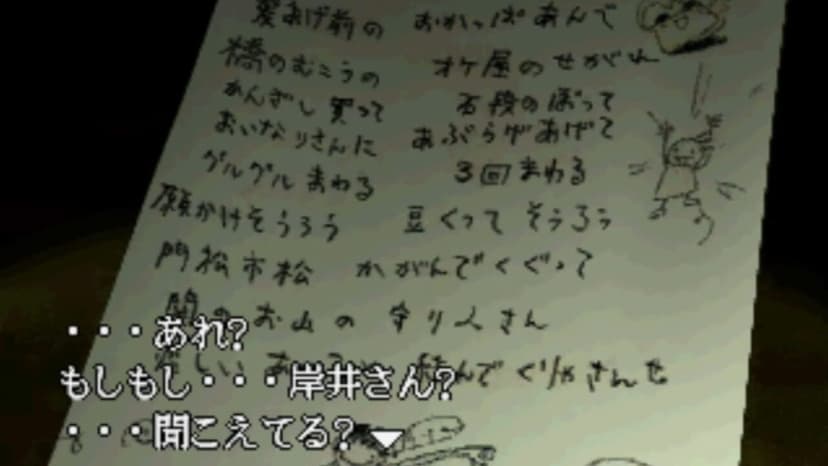 髪あげ前の おかっぱあんで
橋のむこうの オケ屋のせがれ
かんざし買って 石段のぼって
おいなりさんに あぶらげあげて
グルグルまわる 3回まわる
願かけそうろう 豆くって そうろう
門松市松 かがんでくぐって
お山の 守り人さん
・・・あれ?
もしもし・・・岸井さん?
・・・聞こえてる?